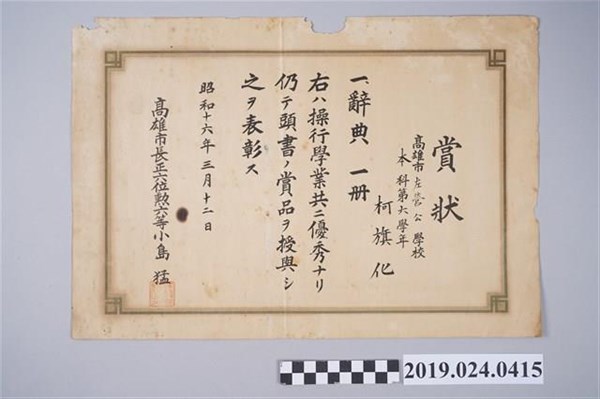 賞狀
高雄市左營公學校
本科第六學年
柯旗化
一、辭典 一冊
右ハ操行學業共ニ優秀ナリ
仍テ頭書ノ賞品ヲ授與シ
之ヲ表彰ス
昭和十六年三月十二日
高雄市長正六位勲六等小島猛
2019.024.0415